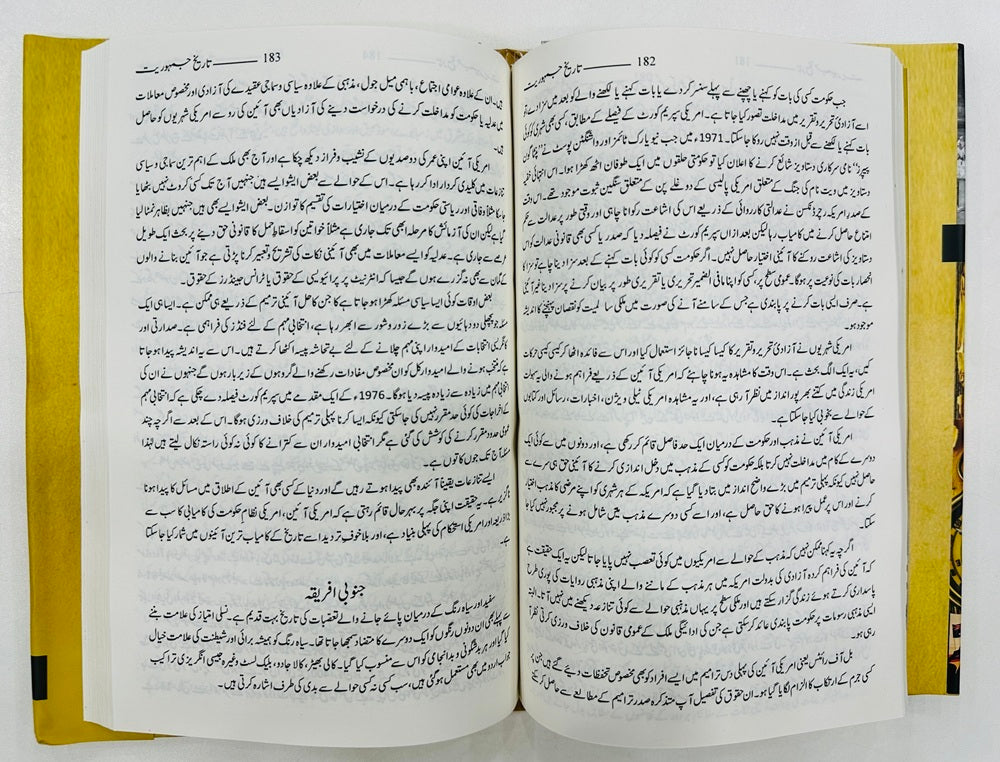 182 ——— تاریخ جمہوریت
جب حکومت کسی کی بات کو کہنے یا چھپنے سے پہلے سنسر کر دے یا بات کہنے یا لکھنے والے کو بعد میں سزا دے تو
اسے آزادیٔ تحریر و تقریر میں مداخلت تصور کیا جاتا ہے۔ امریکی سپریم کورٹ کے فیصلے کے مطابق، کسی بھی شہری کو کوئی
بات کہنے یا لکھنے سے قبل از وقت نہیں روکا جا سکتا۔ 1971ء میں جب نیو یارک ٹائمز اور واشنگٹن پوسٹ نے ”پینٹاگون
پیپرز“ نامی سرکاری دستاویز شائع کرنے کا اعلان کیا تو حکومتی حلقوں میں ایک طوفان اٹھ کھڑا ہوا۔ اس انتہائی خفیہ
دستاویز میں ویت نام کی جنگ کے متعلق امریکی پالیسی کے دوغلے پن کے متعلق سنگین ثبوت موجود تھے۔ اس وقت
کے صدر امریکہ رچرڈ نکسن نے عدالتی کارروائی کے ذریعے اس کی اشاعت رکوانا چاہی اور وقتی طور پر عدالت سے حکم
امتناع حاصل کرنے میں کامیاب رہا لیکن بعد ازاں سپریم کورٹ نے فیصلہ دیا کہ صدر یا کسی بھی قانونی عدالت کو اس
دستاویز کی اشاعت روکنے کا آئینی اختیار حاصل نہیں۔ اگر حکومت کسی کو کوئی بات کہنے کے بعد سزا دینا چاہے تو سزا کا
انحصار بات کی نوعیت پر ہوگا۔ عمومی سطح پر، کسی کو اپنا مافی الضمیر تحریری یا تقریری طور پر بیان کرنے پر سزا دینا غیر آئینی
ہے۔ صرف ایسی بات کرنے پر پابندی ہے جس کے سامنے آنے کی صورت میں ملکی سالمیت کو نقصان پہنچنے کا اندیشہ
موجود ہو۔
امریکی شہریوں نے آزادیٔ تحریر و تقریر کا کیسا کیسا ناجائز استعمال کیا اور اس سے فائدہ اٹھا کر کیسی کیسی حرکات
کیں، یہ ایک الگ بحث ہے۔ اس وقت کا مشاہدہ یہ ہونا چاہئے کہ امریکی آئین کے ذریعے فراہم ہونے والی یہ سہولت
امریکی زندگی میں کتنے بھرپور انداز میں نظر آ رہی ہے، اور یہ مشاہدہ امریکی ٹیلی ویژن، اخبارات، رسائل اور کتابوں
کے حوالے سے بخوبی کیا جا سکتا ہے۔
امریکی آئین نے مذہب اور حکومت کے درمیان ایک حد فاصل قائم کر رکھی ہے، اور دونوں میں سے کوئی ایک
دوسرے کے کام میں مداخلت نہیں کرتا بلکہ حکومت کو کسی کے مذہب میں دخل اندازی کرنے کا آئینی حق ہی سرے سے
حاصل نہیں کیونکہ پہلی ترمیم میں بڑے واضح انداز میں بتا دیا گیا ہے کہ امریکہ کے ہر شہری کو اپنے مرضی کا مذہب اختیار
کرنے اور اس پر عمل پیرا ہونے کا حق حاصل ہے، اور اسے کسی دوسرے مذہب میں شامل ہونے پر مجبور نہیں کیا جا
سکتا۔
اگرچہ یہ کہنا ممکن نہیں کہ مذہب کے حوالے سے امریکیوں میں کوئی تعصب نہیں پایا جاتا لیکن یہ ایک حقیقت ہے
کہ آئین کی فراہم کردہ آزادی کی بدولت امریکہ میں ہر مذہب کے ماننے والے اپنی مذہبی روایات کی پوری طرح
پاسداری کرتے ہوئے زندگی گزار سکتے ہیں اور ملکی سطح پر یہاں مذہبی حوالے سے کوئی تنازعہ دیکھنے میں نہیں آتا۔ البتہ
ایسی مذہبی رسومات پر حکومت پابندی عائد کر سکتی ہے جن کی ادائیگی ملک کے عمومی قانون کی خلاف ورزی کرتی نظر آ
رہی ہو۔
بل آف رائٹس یعنی امریکی آئین کی پہلی دس ترامیم میں ایسے افراد کو بھی مخصوص تحفظات دیئے گئے ہیں جن پر
کسی جرم کے ارتکاب کا الزام لگایا گیا ہو۔ ان حقوق کی تفصیل آپ متذکرہ صدر ترامیم کے مطالعے سے حاصل کر سکتے
183 ——— تاریخ جمہوریت
ہیں۔ ان کے علاوہ عوامی اجتماع، باہمی میل جول، مذہبی کے علاوہ سیاسی و سماجی عقیدے کی آزادی اور مخصوص معاملات
میں عدلیہ یا حکومت کو مداخلت کرنے کی درخواست دینے کی آزادیاں بھی آئین کی رو سے امریکی شہریوں کو حاصل
ہیں۔
امریکی آئین اپنی عمر کی دو صدیوں کے نشیب و فراز دیکھ چکا ہے اور آج بھی ملک کے اہم ترین سماجی و سیاسی
تنازعات میں کلیدی کردار ادا کر رہا ہے۔ اس کے حوالے سے بعض ایشو ایسے ہیں جنہیں آج تک کسی کروٹ نہیں بٹھایا
جا سکا مثلاً وفاقی اور ریاستی حکومت کے درمیان اختیارات کی تقسیم کا توازن۔ بعض ایشو ایسے بھی ہیں جنہیں بظاہر نمٹا لیا
گیا ہے لیکن ان کی آزمائش کا مرحلہ ابھی تک جاری ہے مثلاً خواتین کو اسقاط حمل کا قانونی حق دینے پر بحث ایک طویل
عرصے سے جاری ہے۔ عدلیہ کو ایسے معاملات میں بھی آئینی نکات کی تشریح و تعبیر کرنا پڑتی ہے جو آئین بنانے والوں
کے گمان سے بھی نہ گزرے ہوں گے جیسا کہ انٹرنیٹ پر پرائیویسی کے حقوق یا ٹرانس جینڈرز کے حقوق۔
بعض اوقات کوئی ایسا سیاسی مسئلہ کھڑا ہو جاتا ہے کا جن کا حل آئینی ترمیم کے ذریعے ہی ممکن ہے۔ ایسا ہی ایک
مسئلہ جو پچھلی دو دہائیوں سے بڑے زور و شور سے ابھر رہا ہے، انتخابی مہم کے لئے فنڈز کی فراہمی ہے۔ صدارتی اور
کانگریسی انتخابات کے امیدوار اپنی مہم چلانے کے لئے بے تحاشہ پیسہ اکٹھا کرتے ہیں۔ اس سے یہ اندیشہ پیدا ہو جاتا
ہے کہ منتخب ہونے والے امیدوار کل کو ان مخصوص مفادات رکھنے والے گروہوں کے زیر بار ہوں گے جنہوں نے ان کی
انتخابی مہم میں زیادہ سے زیادہ پیسہ دیا ہوگا۔ 1976ء کے ایک مقدمے میں سپریم کورٹ فیصلہ دے چکی ہے کہ انتخابی مہم
کے اخراجات کی کوئی حد مقرر نہیں کی جا سکتی کیونکہ ایسا کرنا پہلی ترمیم کی خلاف ورزی ہوگا۔ اس کے بعد سے اگرچہ چند
عمومی حدود مقرر کرنے کی کوشش کی گئی ہے مگر انتخابی امیدوار ان سے کترانے کا کوئی نہ کوئی راستہ نکال لیتے ہیں لہٰذا
مسئلہ آج تک جوں کا توں ہے۔
ایسے تنازعات یقیناً آئندہ بھی پیدا ہوتے رہیں گے اور دنیا کے کسی بھی آئین کے اطلاق میں مسائل کا پیدا ہونا
ناگزیر ہے۔ یہ حقیقت اپنی جگہ پر بہرحال قائم رہتی ہے کہ امریکی آئین، امریکی نظام حکومت کی کامیابی کا سب سے
بڑا ذریعہ اور امریکی استحکام کی پہلی بنیاد ہے، اور بلاخوف تردید اسے تاریخ کے کامیاب ترین آئینوں میں شمار کیا جا سکتا
ہے۔
جنوبی افریقہ
سفید اور سیاہ رنگ کے درمیان پائے جانے والے تعصبات کی تاریخ بہت قدیم ہے۔ نسلی امتیاز کی علامت بننے
سے پہلے بھی ان دونوں رنگوں کو ایک دوسرے کا متضاد سمجھا جاتا تھا۔ سیاہ رنگ کو ہمیشہ برائی اور شیطنت کی علامت خیال
کیا گیا اور ہر بدشگونی و بدانجامی کو اس سے منسوب کیا گیا۔ کالی بھیڑ، کالا جادو، بلیک لسٹ وغیرہ جیسی انگریزی تراکیب
جو اب اردو میں بھی مستعمل ہو گئی ہیں، سب کسی نہ کسی حوالے سے بدی کی طرف اشارہ کرتی ہیں۔